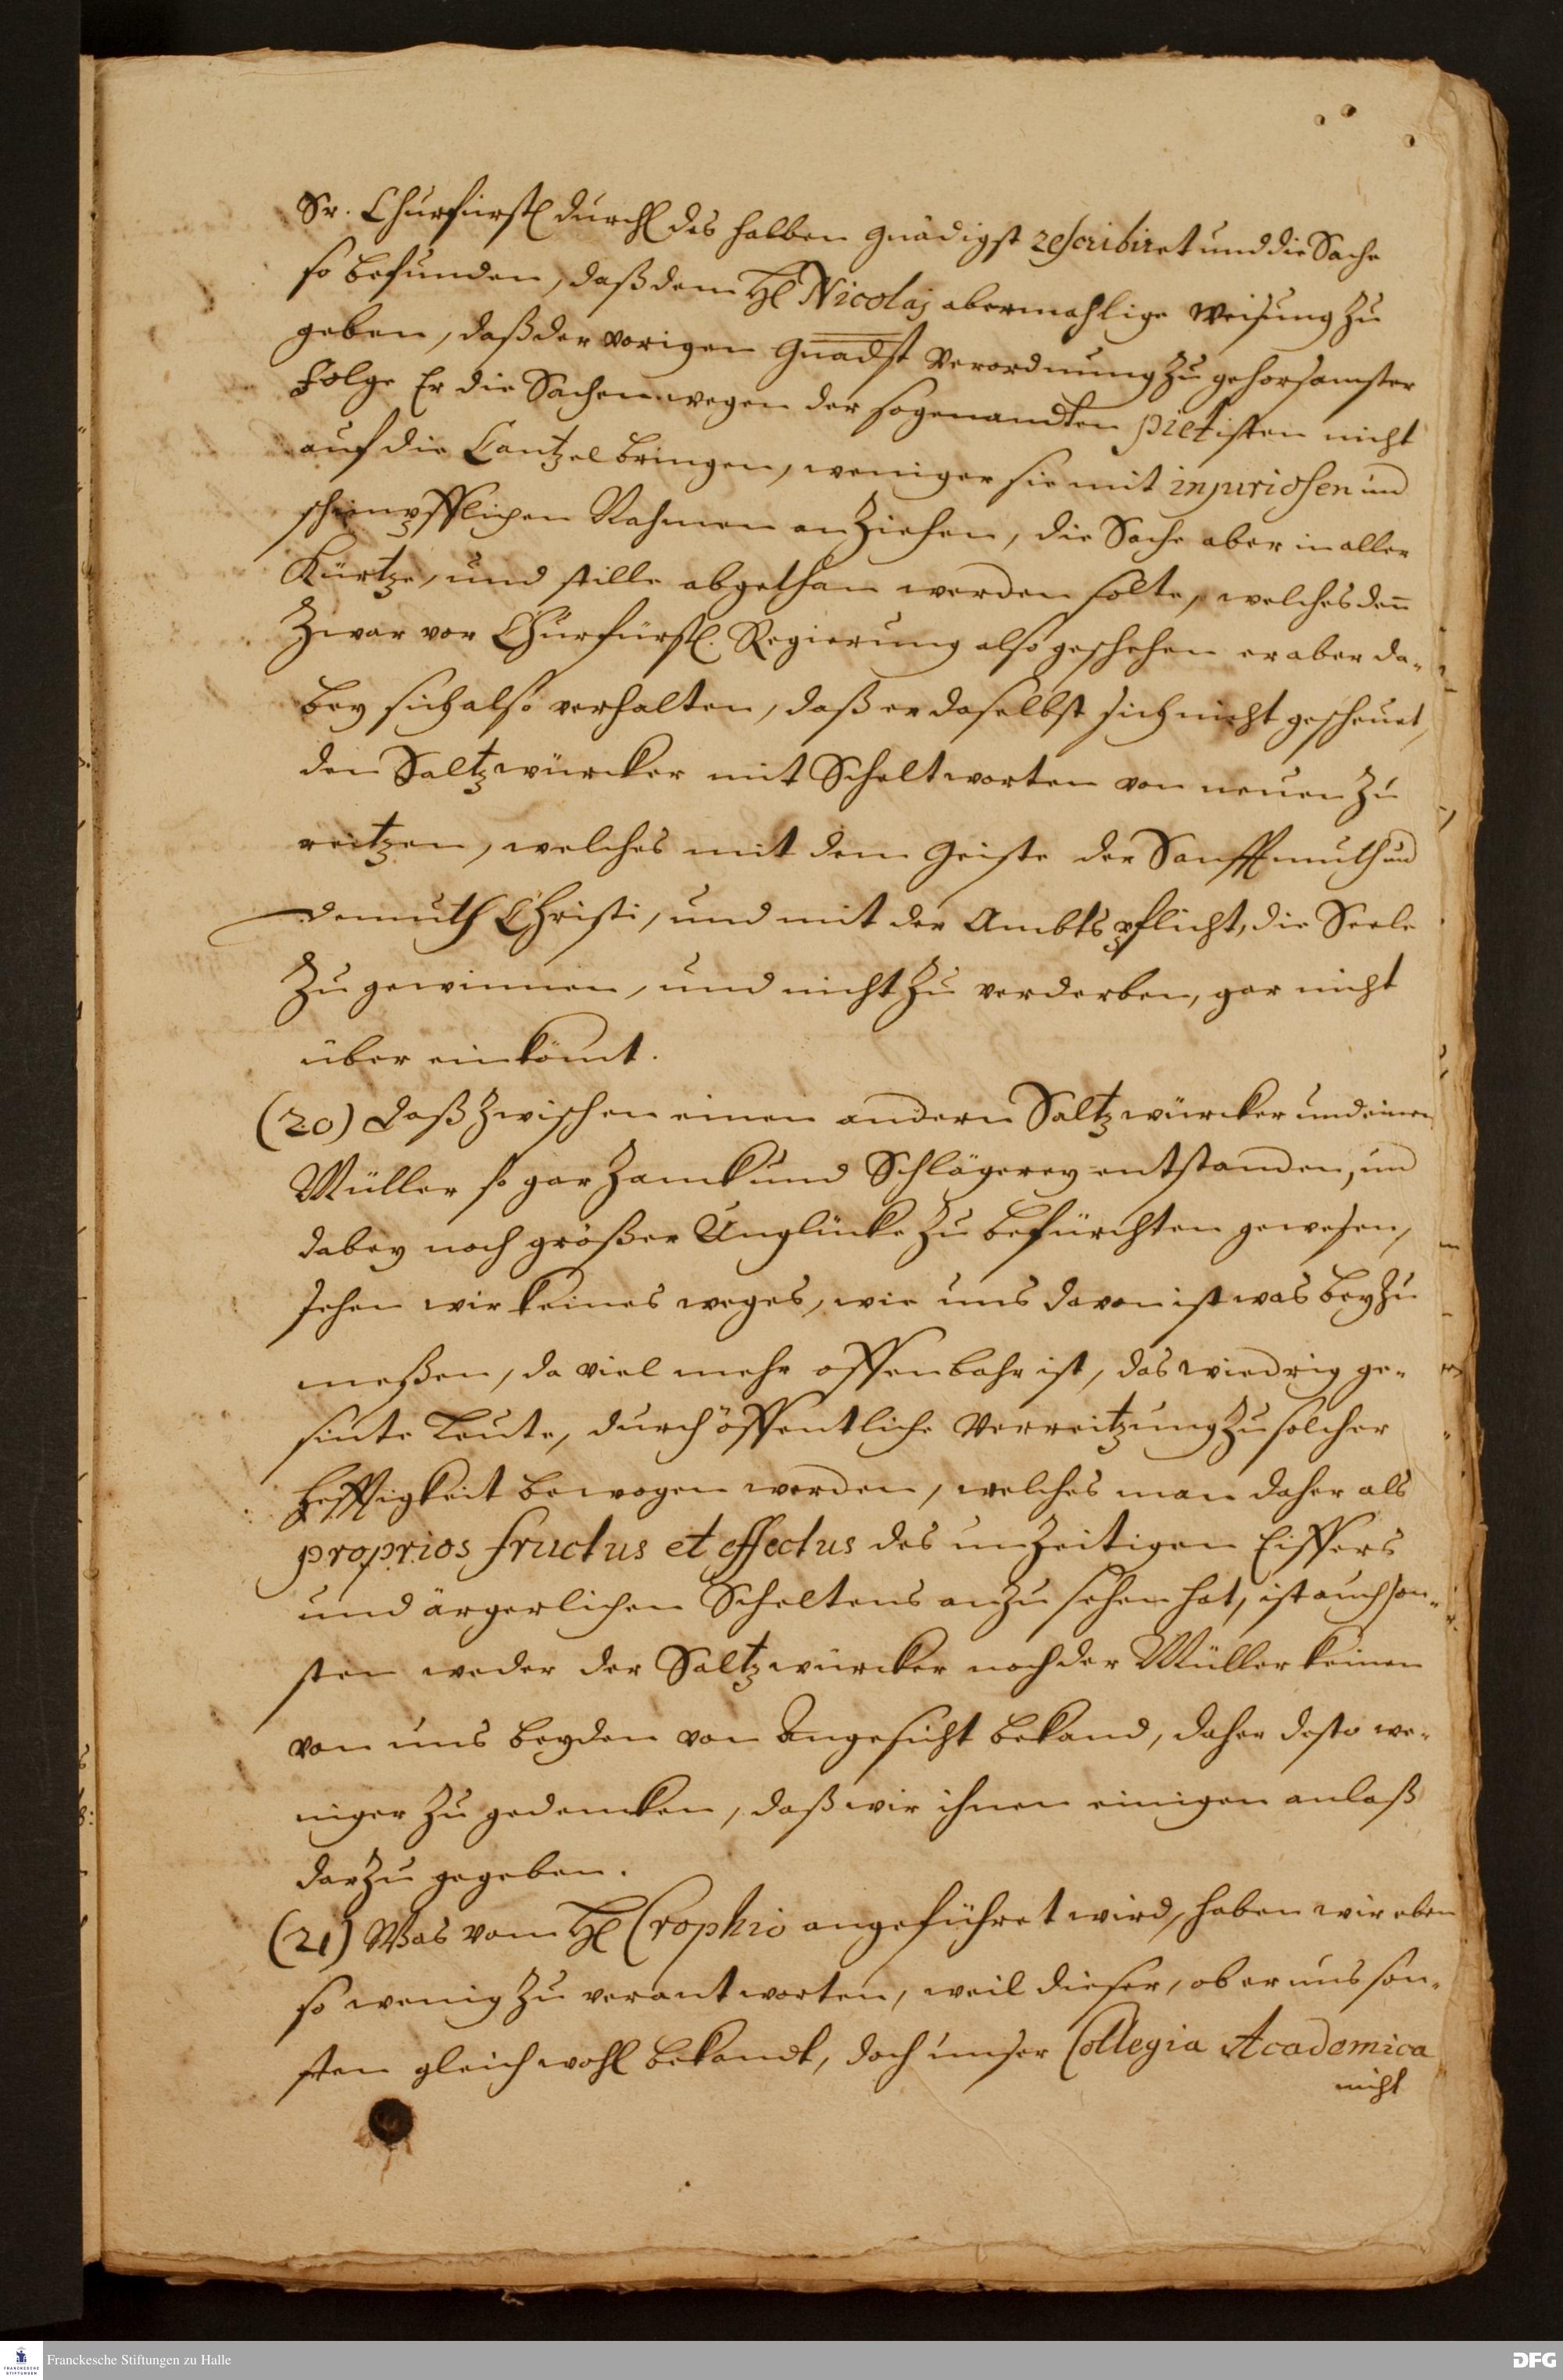 Sr. Churfürstl durchl des halben gnädigst rescribiret und die Sache
so befunden, daß dem Hl Nicolaj abermahlige Weisung zu
geben, daß der vorigen Gnädst Verordnung zu gehorsamster
Folge Er die Sachen wegen der sogenandten pietisten nicht
auf die Cantzel bringen, weniger sie mit injuriosen und
schimpfflichen Nahmen an ziehen, die Sache aber in aller
Kürtze, und stille abgethan werden solte, welches deñ
Zwar vor Churfürstl. Regierung also geschehen er aber da-
bey sich also verhalten, daß er daselbst sich nicht gescheuet,
den Saltzwürcker mit Scheltworten von neuen zu
reitzen, welches mit dem Geiste der Sanfftmuth und
demuth Christi, und mit der Ambts pflicht, die Seele
Zu gewinnen, und nicht zu verderben, gar nicht
über einkömt.
(20) Daß zwischen einen andern Saltzwürcker und einen
Müller so gar Zanck und Schlägerey entstanden, und
dabey noch größer Unglücke zu befürchten gewesen,
sehen wir keines weges, wie uns davon ist was beyzu
meßen, da viel mehr offenbahr ist, das wiedrig ge-
sinte Leute, durch öffentliche Verreitzung zu solcher
Hefftigkeit bewogen werden, welches man daher als
proprios fructus et effectus des unzeitigen Eiffers
und ärgerlichen Scheltens anzu sehen hat, ist auch son-
sten weder der Saltzwürcker noch der Müller keinen
von uns beyden von Angesicht bekand, daher desto we-
niger zu gedencken, daß wir ihnen einigen anlaß
darzu gegeben.
(21) Was vom Hl Crophio angeführet wird, haben wir eben
so wenig zu verantworten, weil dieser, ob er uns son-
sten gleich wohl bekandt, doch unser Collegia Academica
nicht
Franckesche Stiftungen zu Halle
FRANCKESCHE
STIFTUNGEN
DFG